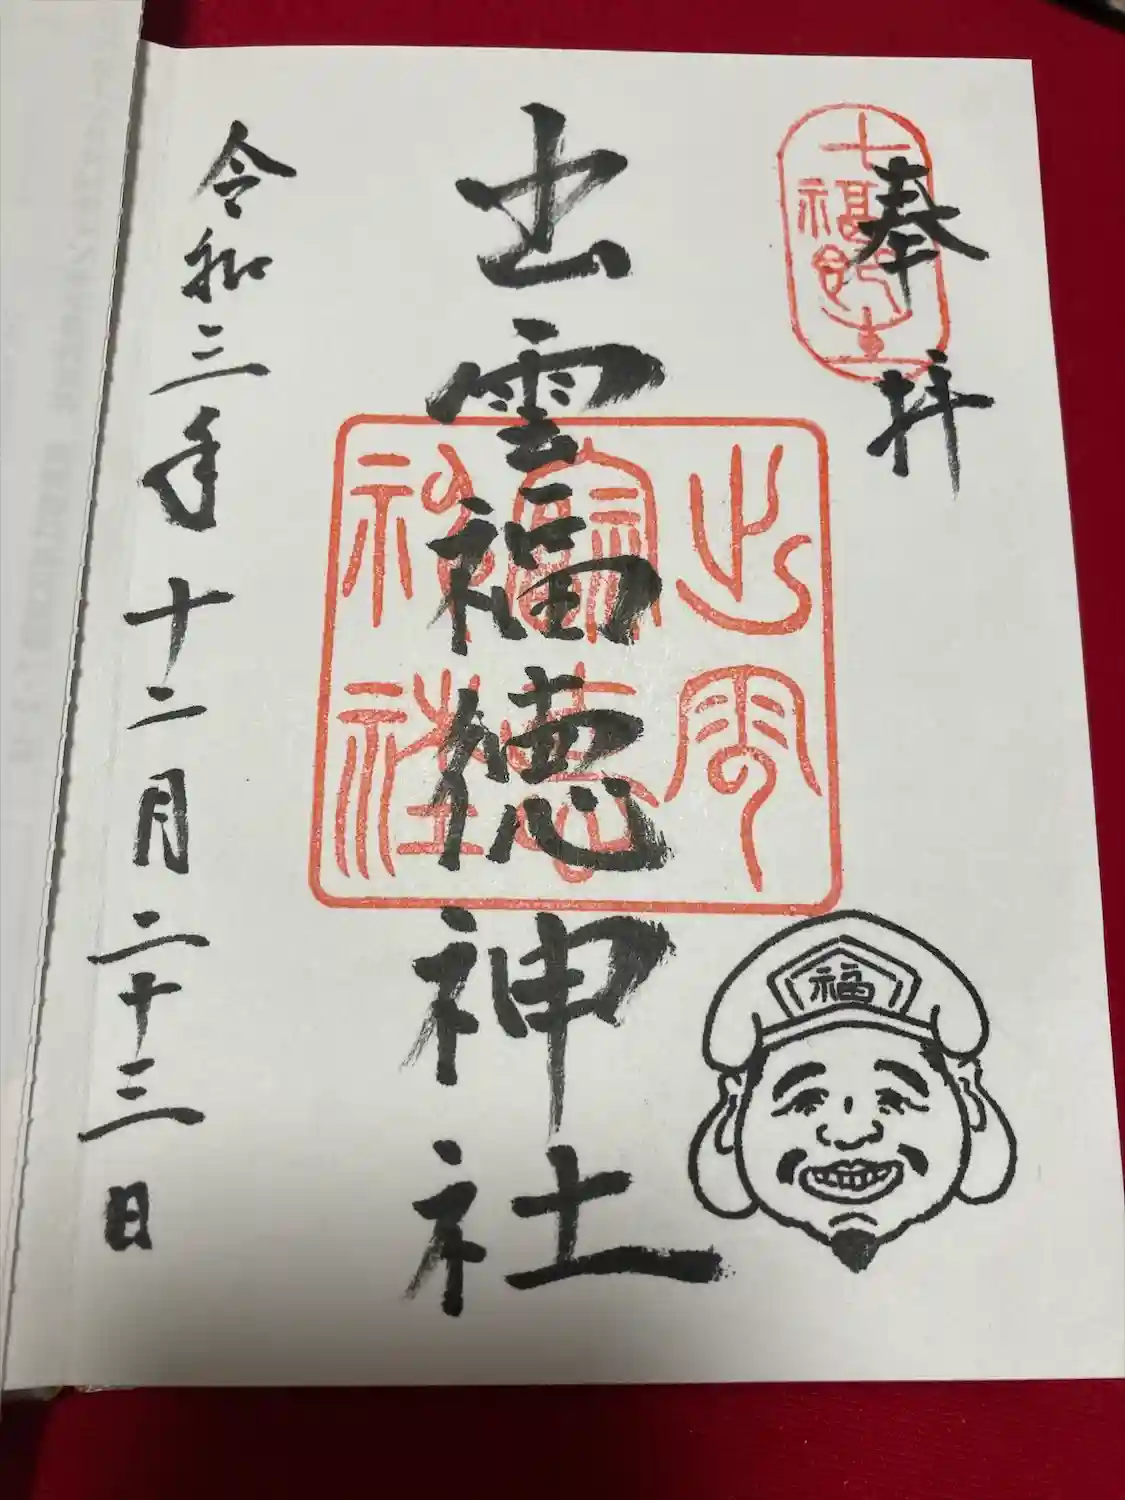 奉拝
出雲福徳神社
出雲福徳神社
令和三年十二月二十三日
福